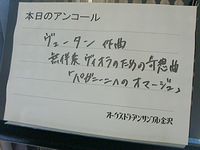 本日のアンコール
ヴュータン 作曲
無伴奏 ヴィオラのための奇想曲
「パガニーニへのオマージュ」
オーケストラアンサンブル金沢